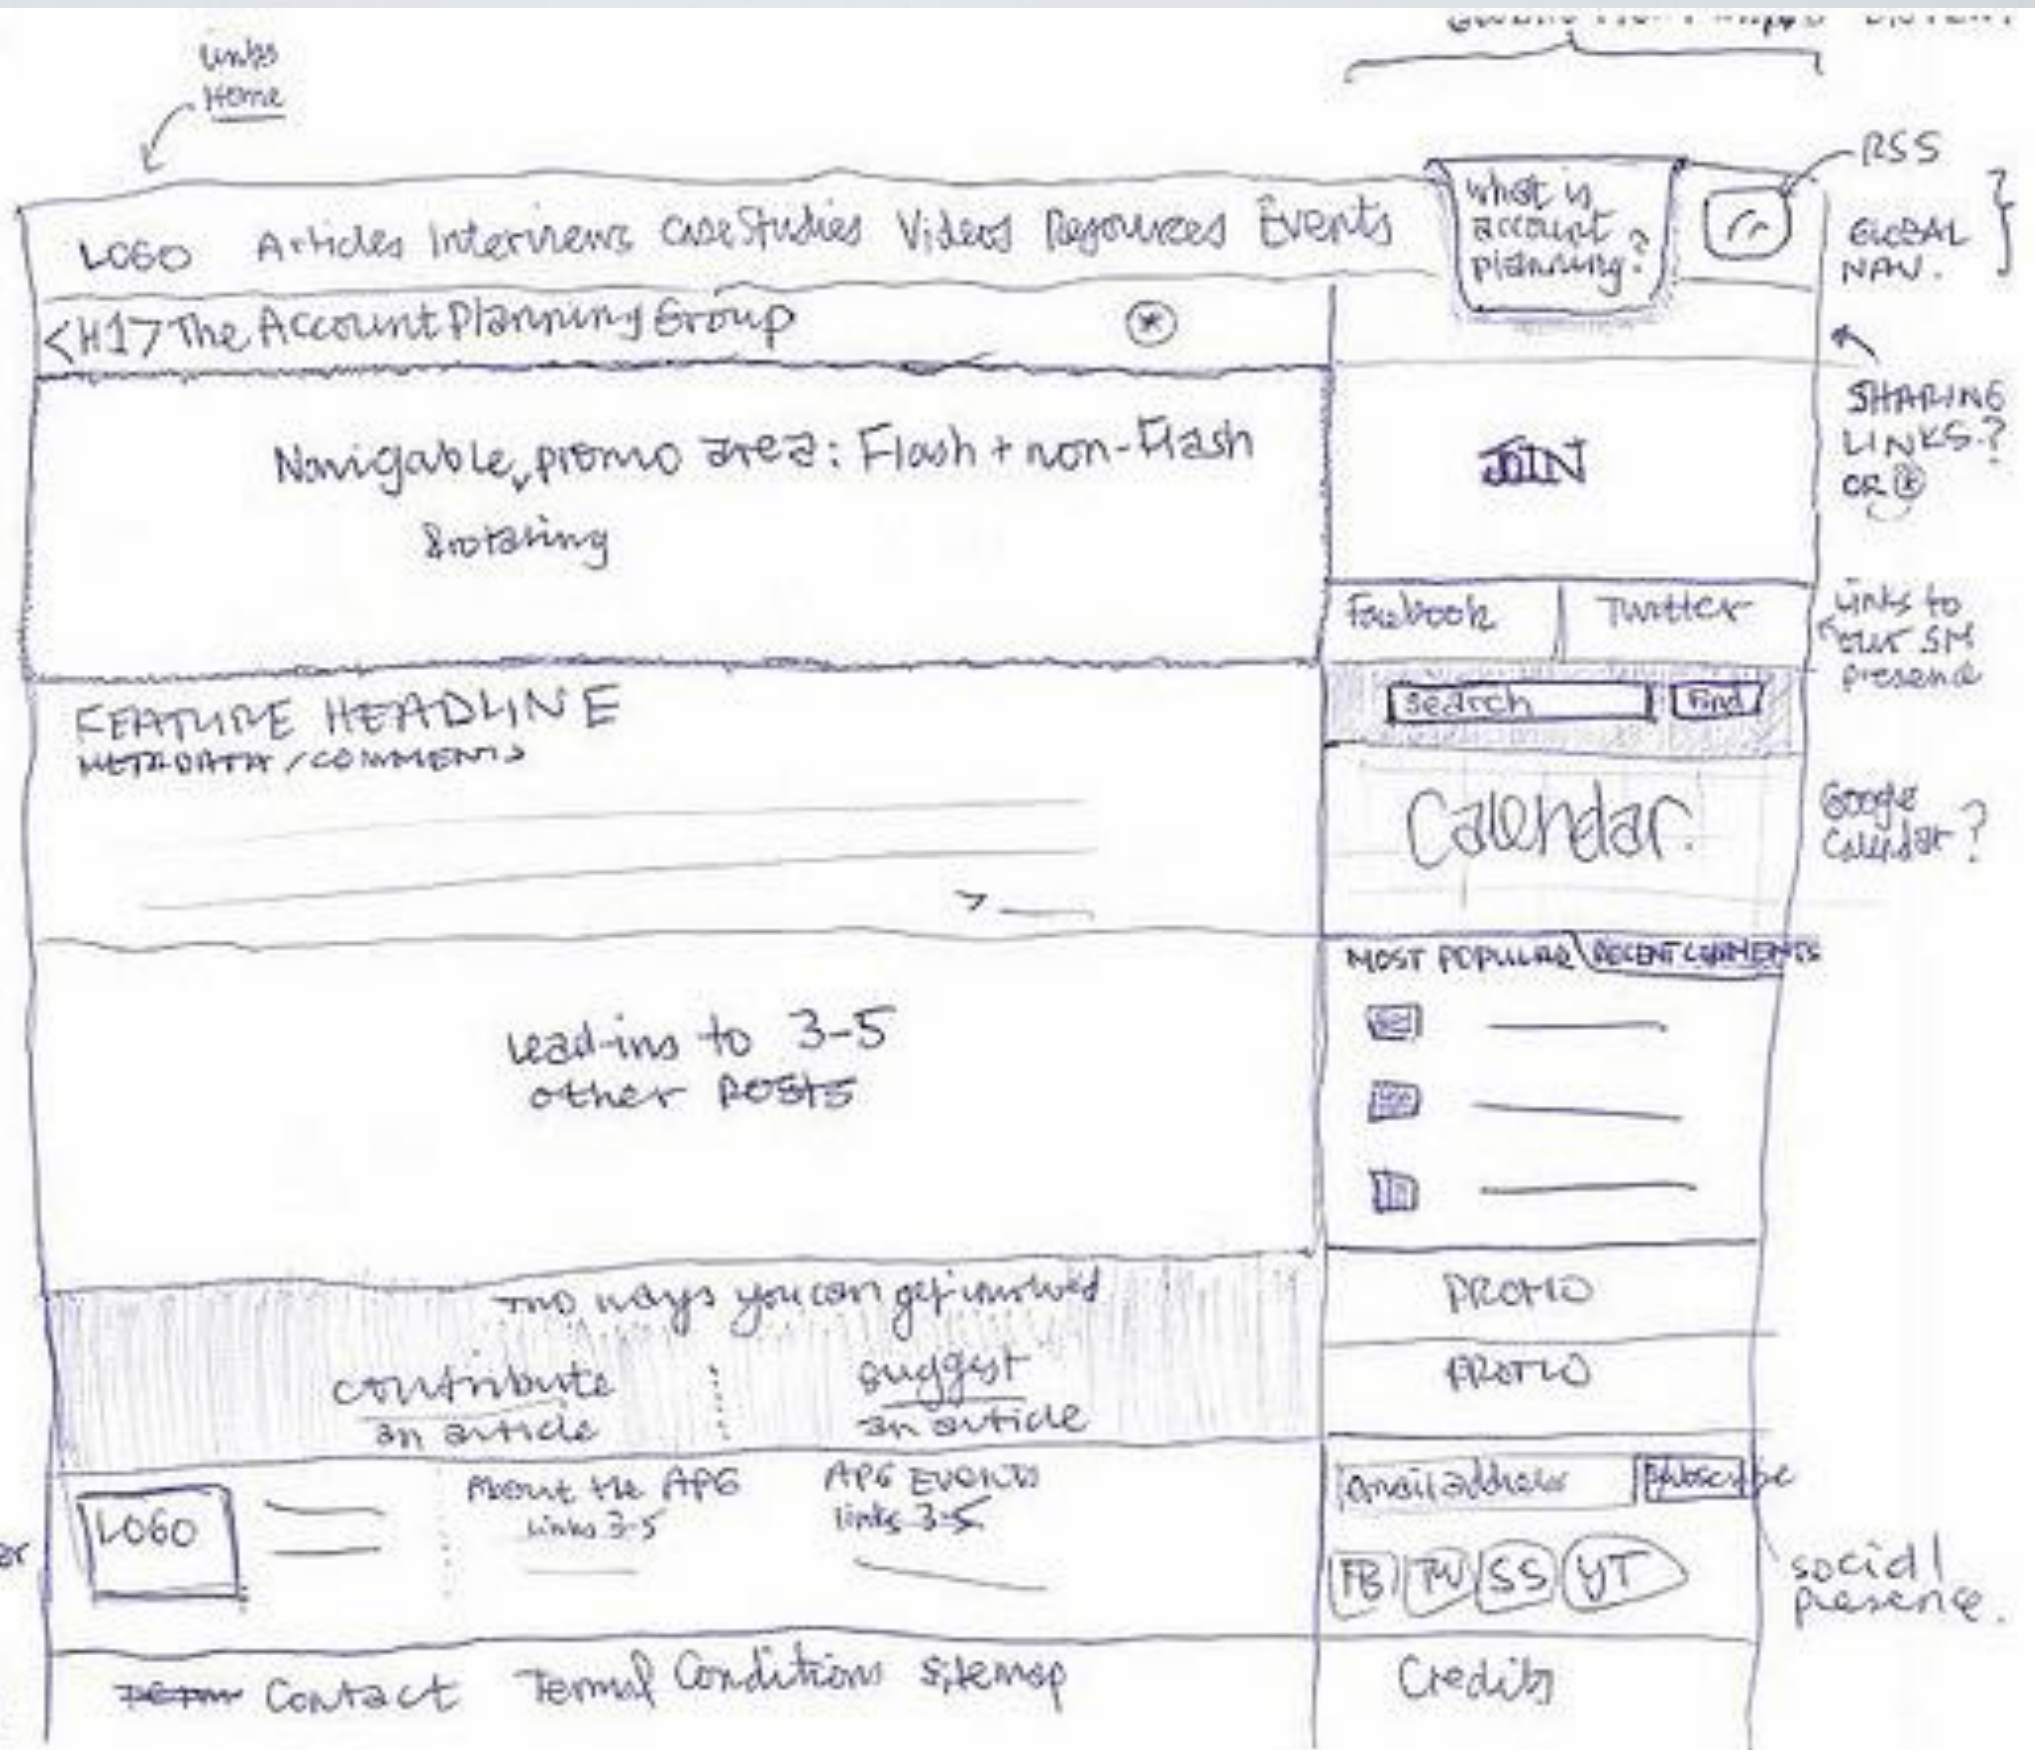 Links
Home
RSS
LOGO Articles Interviews Case Studies Videos Resources Events
What is
account
planning?
GLOBAL
NAV.
<H1> The Account Planning Group
*
SHARING
LINKS?
OR *
Navigable, promo area: Flash + non-Flash
& rotating
JOIN
Facebook Twitter
Links to
our SM
presence
Search Find
FEATURE HEADLINE
METADATA / COMMENTS
Calendar.
Google
Calendar?
>
MOST POPULAR RECENT COMMENTS
Lead-ins to 3-5
other POSTS
Two ways you can get involved
contribute
an article
suggest
an article
PROMO
PROMO
LOGO
About the APG
links 3-5
APG EVENTS
links 3-5
email address Subscribe
FB TW SS YT
social
presence.
Contact Conditions Sitemap
Credits